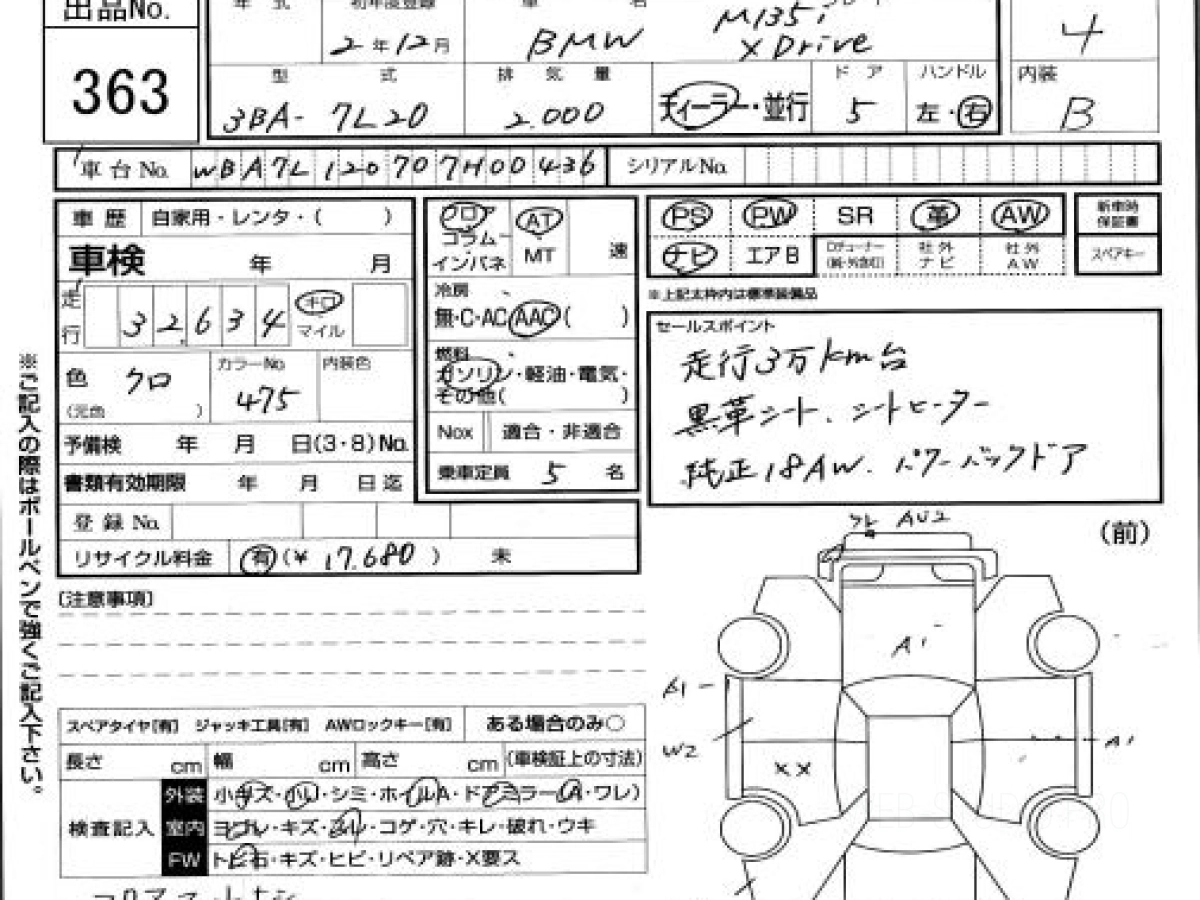 出品No. 年 式 初年度登録 車 名 M135i
2年12月 BMW xDrive 4
363 型 式 排 気 量 ドア ハンドル 内装
3BA-7L20 2.000 ディーラー・並行 5 左・右 B
車台No. WBA7L120707H00436 シリアルNo.
車 歴 自家用・レンタ・( )
車検 年 月
走行 32,634 キロ マイル
色 クロ カラーNo. 475 内装色
(元色 )
予備検 年 月 日(3・8)No.
書類有効期限 年 月 日迄
登録No.
リサイクル料金 有(¥ 17.680 ) 未
フロア コラム インパネ AT MT 速
冷房
無・C・AC・AAC( )
燃料
ガソリン・軽油・電気・
その他( )
Nox 適合・非適合
乗車定員 5 名
PS PW SR 革 AW 新車時保証書
ナビ エアB Dチューナー 社外ナビ 社外AW スペアキー
※上記太枠内は標準装備品
セールスポイント
走行3万km台
黒革シート、シートヒーター
純正18AW、パワーバックドア
※ご記入の際はボールペンで強くご記入下さい。
〔注意事項〕
スペアタイヤ[有] ジャッキ工具[有] AWロックキー[有] ある場合のみ○
長さ cm 幅 cm 高さ cm (車検証上の寸法)
検査記入
外装 小キズ・小凹・シミ・ホイルA・ドアミラー(A・ワレ)
室内 ヨゴレ・キズ・スレ・コゲ・穴・キレ・破れ・ウキ
FW トビ石・キズ・ヒビ・リペア跡・X要ス
(前)
AU2
A1
A1
W2
A1
XX